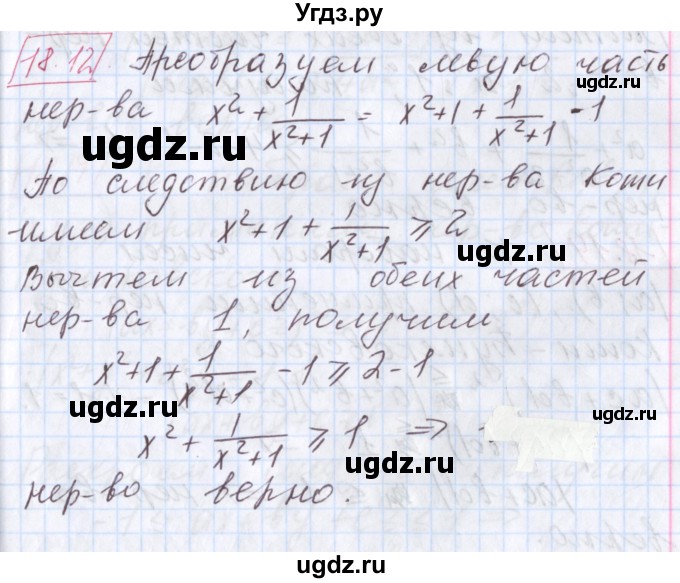 Угдз.ру
18.12 Преобразуем левую часть
нер-ва x²+1/(x²+1) = x²+1+1/(x²+1) -1
ugdz.ru ugdz.ru
По следствию из нер-ва Коши
имеем x²+1+1/(x²+1) ⩾ 2
ugdz.ru
Вычтем из обеих частей
нер-ва 1, получим
x²+1+1/(x²+1) -1 ⩾ 2-1
ugdz.ru ugdz.ru
x²+1/(x²+1) ⩾ 1 ⇒
ugdz.ru
нер-во верно.
ugdz.ru ugdz.ru